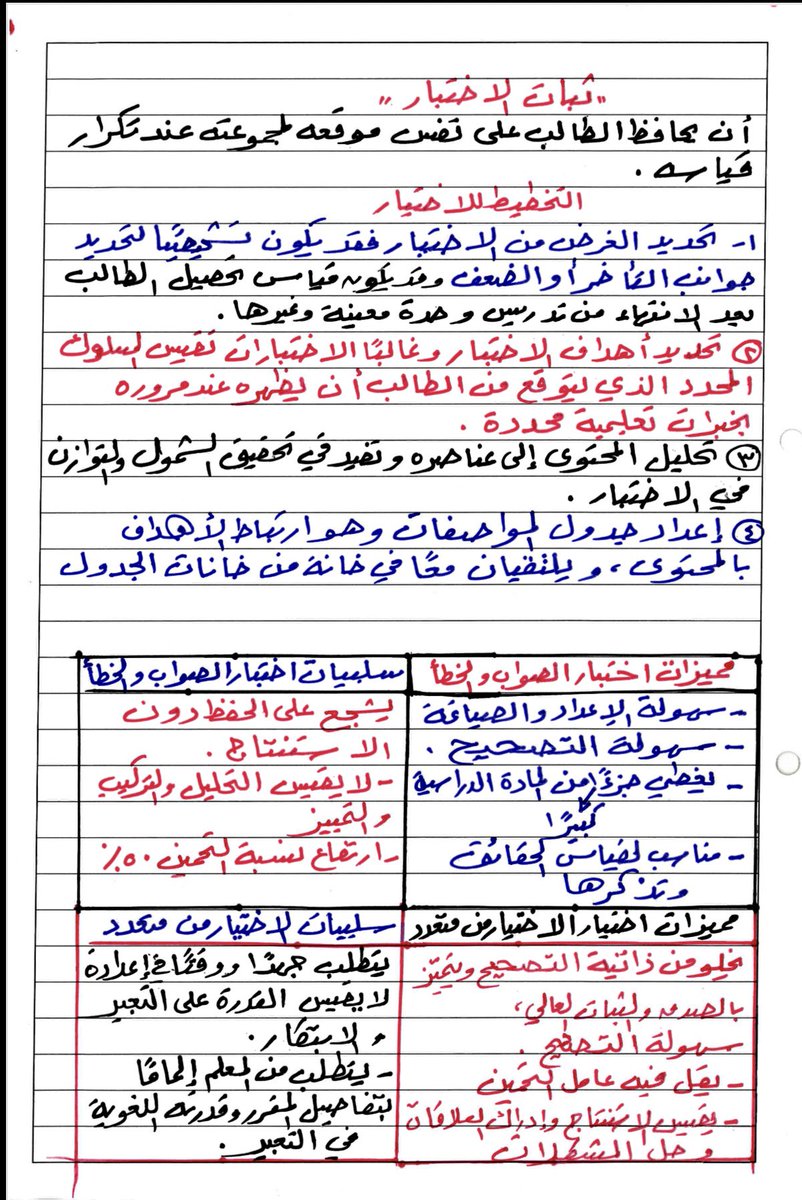 "ثبات الاختبار"
أن يحافظ الطالب على نفس موقعه لمجموعته عند تكرار
قياسه .
التخطيط للاختبار
١- تحديد الغرض من الاختبار فقد يكون تشخيصيًا لتحديد
جوانب التأخر أو الضعف وقد يكون قياس تحصيل الطالب
بعد الانتهاء من تدريس وحدة معينة وغيرها .
② تحديد أهداف الاختبار وغالبًا الاختبارات تقيس السلوك
المحدد الذي يتوقع من الطالب أن يظهره عند مروره
بخبرات تعليمية محددة .
③ تحليل المحتوى إلى عناصره وتفيد في تحقيق الشمول والتوازن
في الاختبار .
④ إعداد جدول المواصفات وهو ارتباط الأهداف
بالمحتوى، ويلتقيان معًا في خانة من خانات الجدول
مميزات اختبار الصواب والخطأ
- سهولة الإعداد والصياغة
- سهولة التصحيح .
- يغطي جزءًا من المادة الدراسية
كبيرًا
- مناسب لقياس الحقائق
وتذكرها
سلبيات اختبار الصواب والخطأ
يشجع على الحفظ دون
الاستنتاج .
- لا يقيس التحليل والتركيب
والتمييز
- ارتفاع نسبة التخمين ٥٠٪
مميزات اختبار الاختيار من متعدد
يخلو من ذاتية التصحيح ويتميز
بالصدق والثبات العالي،
سهولة التصحيح .
- يقل فيه عامل التخمين
- يقيس الاستنتاج وإدراك العلاقات
وحل المشكلات
سلبيات الاختيار من متعدد
يتطلب جهدًا ووقتًا في إعدادة
لا يقيس القدرة على التعبير
والابتكار .
- يتطلب من المعلم إلمامًا
بتفاصيل المقرر وقدرته اللغوية
في التعبير .